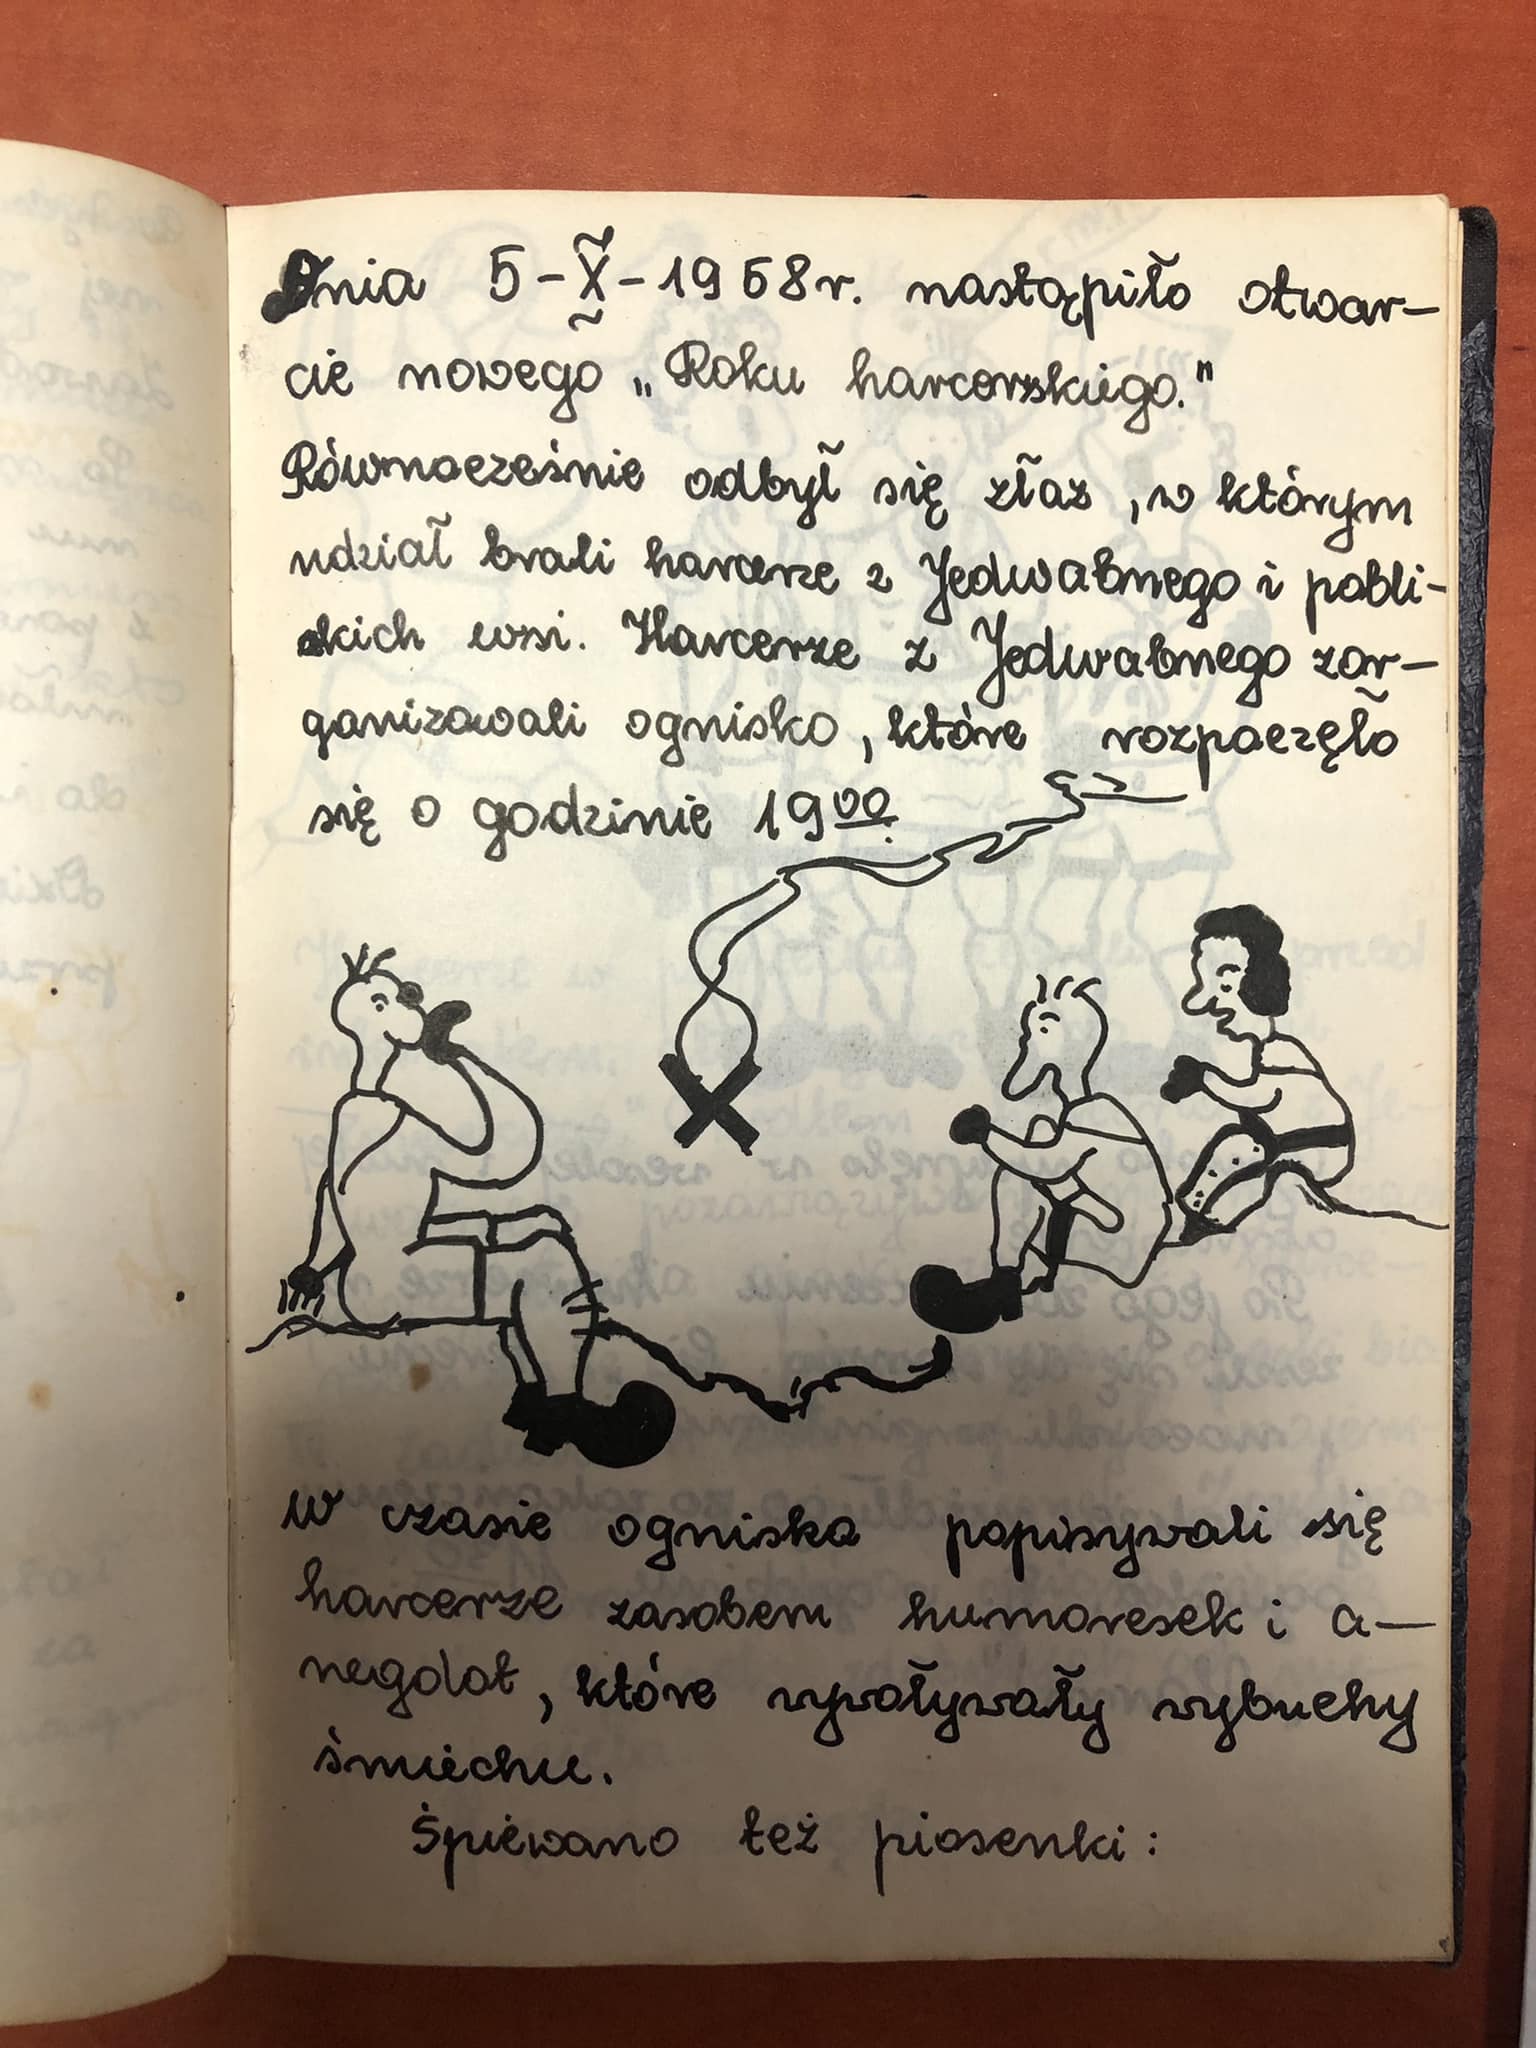 Dnia 5-X-1958r. nastąpiło otwar-
cie nowego „Roku harcerskiego."
Równocześnie odbył się złaz, w którym
udział brali harcerze z Jedwabnego i pobli-
skich wsi. Harcerze z Jedwabnego zor-
ganizowali ognisko, które rozpoczęło
się o godzinie 19⁰⁰.
W czasie ogniska popisywali się
harcerze zasobem humoresek i a-
negdot, które wywoływały wybuchy
śmiechu.
Śpiewano też piosenki: